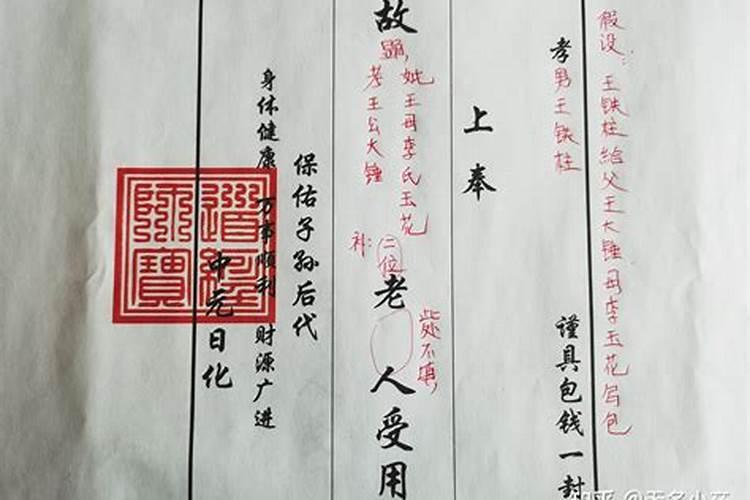 假设：王铁柱给父王大锤母李玉花写包
孝男王铁柱 谨具包钱一封
上奉
故
显
妣王母李氏玉花
考王公大锤
补：二位
老人受用
此处不填
保佑子孙后代
身体健康 万事顺利 财源广进
中元日化
道經師寶
知乎